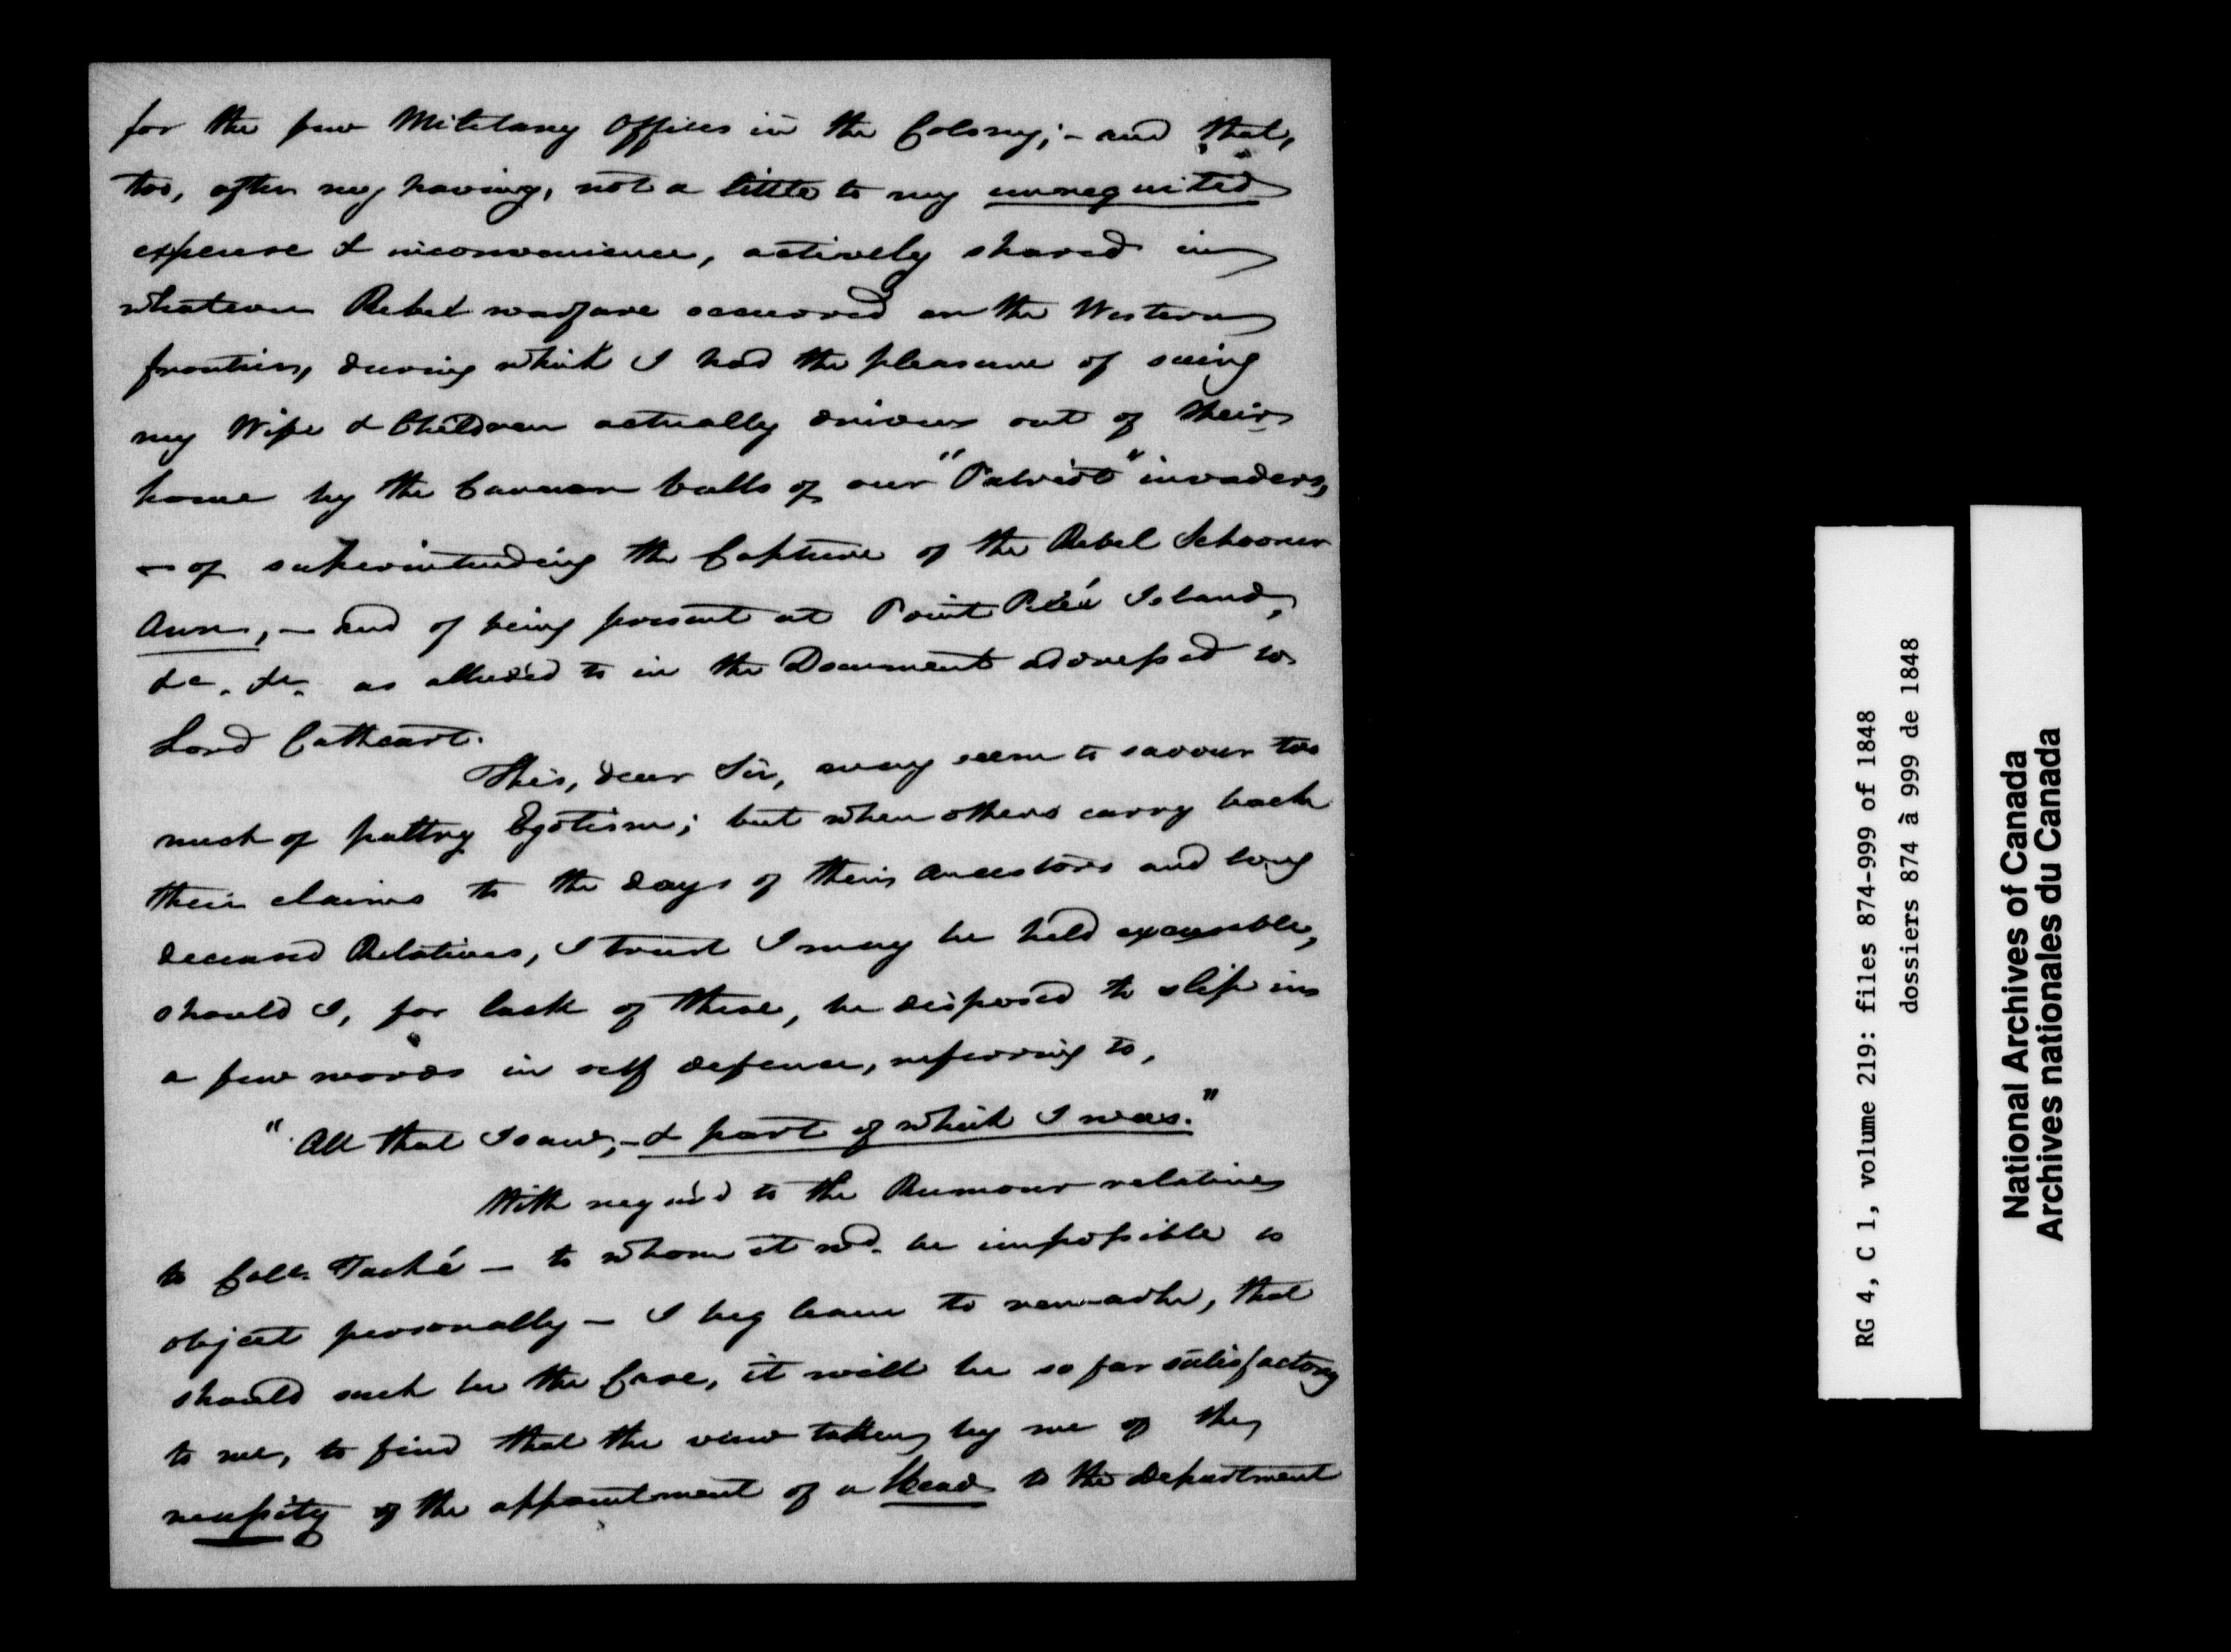 for the few Militany Offices in the Colony; – and that,
too, after my having, not a little to my unrequited
expense & inconvenience, actively shared in
whatever Rebel warfare occurred on the Western
frontier, during which I had the pleasure of seeing
my Wife & Children actually driven out of their
home by the Cannon balls of our "Patriot" invaders,
– of superintending the Capture of the Rebel Schooner
Ann, – and of being present at Point Peleé Island,
&c. &c. as alluded to in the Document addressed to
Lord Cathcart.
This, dear Sir, may seem to savour too
much of paltry Egotism; but when others carry back
their claims to the days of their Ancestors and long
deceased Relatives, I trust I may be held excusable,
should I, for lack of these, be disposed to slip in
a few words in self defence, referring to,
"All that I saw, – & part of which I was."
With regard to the Rumour relative
to Coll. Taché – to whom it wd. be impossible to
object personally – I beg leave to remark, that
should such be the Case, it will be so far satisfactory
to me, to find that the view taken by me of the
necessity of the appointment of a Head to the department
RG 4, C 1, volume 219: files 874-999 of 1848
dossiers 874 à 999 de 1848
National Archives of Canada
Archives nationales du Canada